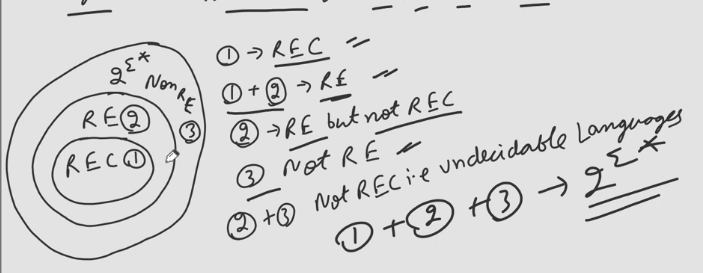 2^Σ*
Non RE
RE ②
③
REC ①
① → REC
① + ② → RE
② → RE but not REC
③ Not RE
② + ③ Not REC i.e undecidable Languages
① + ② + ③ → 2^Σ*